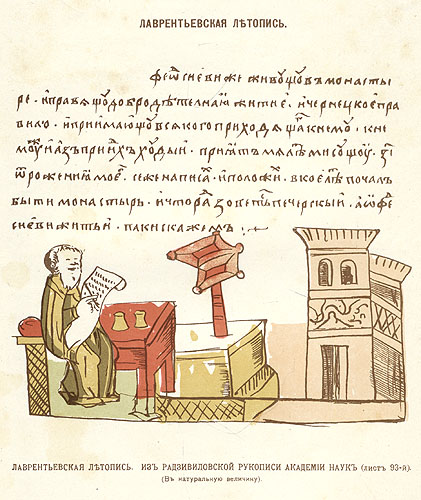 ЛАВРЕНТЬЕВСКАЯ ЛѢТОПИСЬ.
ф҃еѡ҃сиеви же живꙋщꙋ въ монасты
ре · и правѧщꙋ добродѣтелнаꙗ житие · и чернецкое пра
вило · и приимающꙋ всѧкого приходѧща к немꙋ · к не
мꙋ и азъ придохъ хꙋдыи · приꙗтъ мѧ лѣт ми сꙋщꙋ
ѿ рожениꙗ моего се же написа и положи в кое лѣто почалъ
быти монастырь · и что ради зоветь печерскыи а ѡ фео
сиеви житьи паки скажемъ
ЛАВРЕНТЬЕВСКАЯ ЛѢТОПИСЬ. ИЗЪ РАДЗИВИЛОВСКОЙ РУКОПИСИ АКАДЕМІИ НАУКЪ (листъ 93-й).
(Въ натуральную величину).